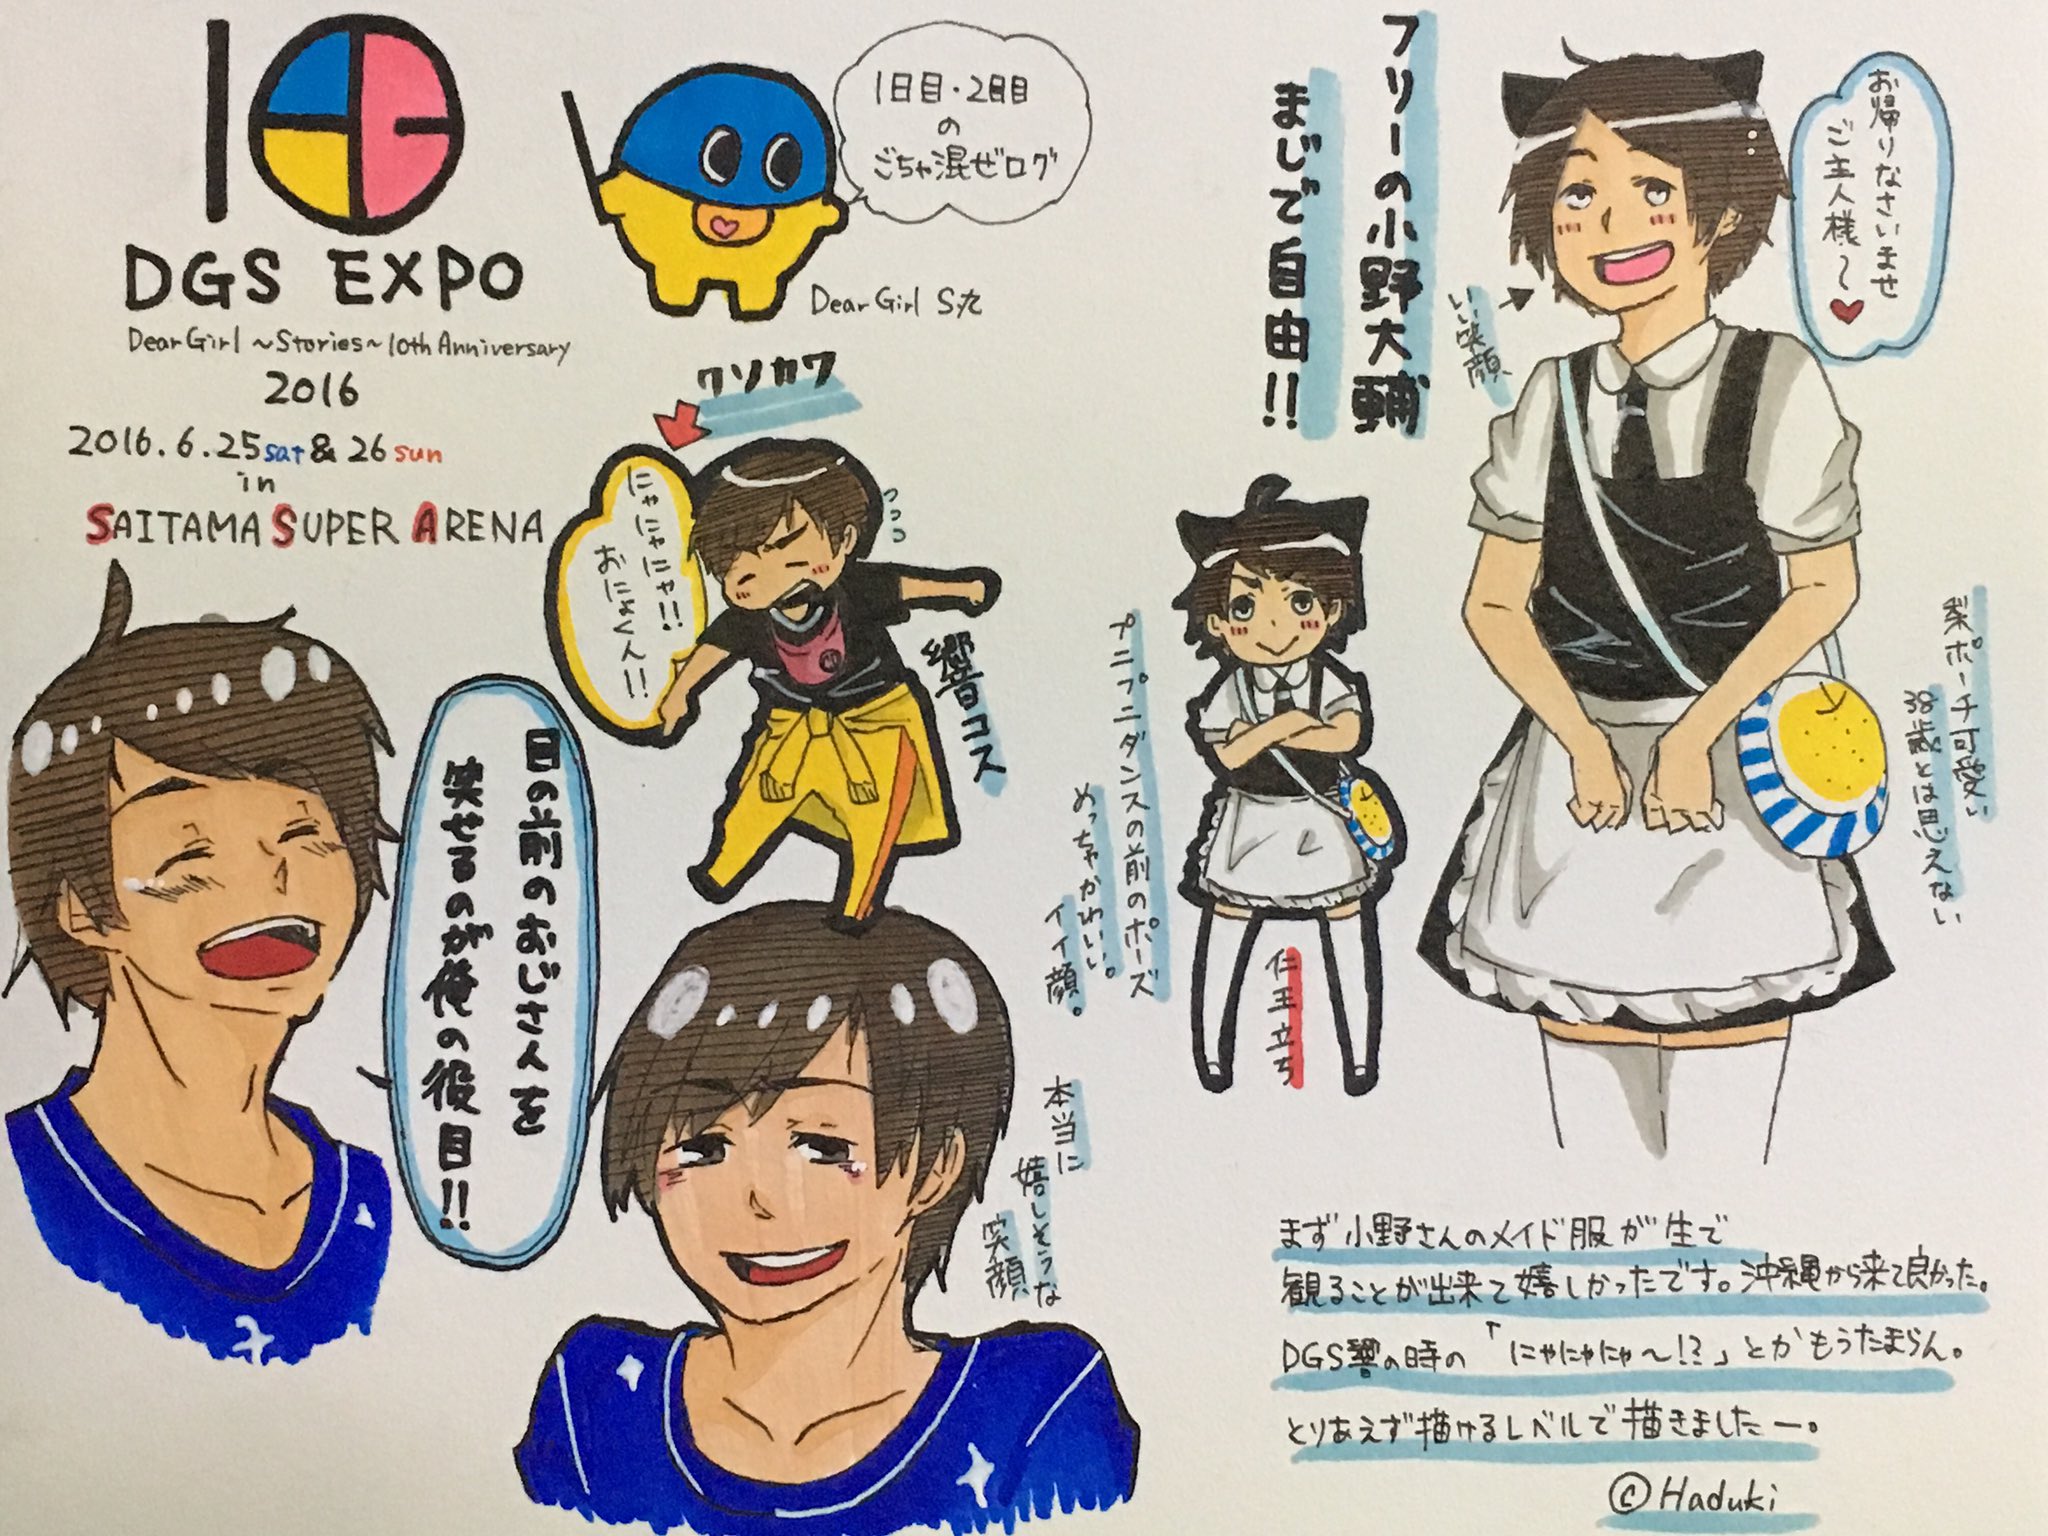 10
DGS EXPO
Dear Girl ～Stories～ 10th Anniversary
2016
2016.6.25sat&26sun
in
SAITAMA SUPER ARENA
1日目・2日目
の
ごちゃ混ぜログ
Dear Girl S丸
クソカワ
にゃにゃにゃ!!
おにょくん!!
つつつ
響コス
目の前のおじさんを
笑せるのが俺の役目!!
本当に
嬉しそうな
笑顔
フリーの小野大輔
まじで自由!!
お帰りなさいませ
ご主人様〜♥
いい笑顔
プニプニダンスの前のポーズ
めっちゃかわいい。
イイ顔。
仁王立ち
梨ポーチ可愛い
38歳とは思えない
まず小野さんのメイド服が生で
観ることが出来て嬉しかったです。沖縄から来て良かった。
DGS響の時の「にゃにゃにゃ〜!?」とかもうたまらん。
とりあえず描けるレベルで描きましたー。
©Haduki